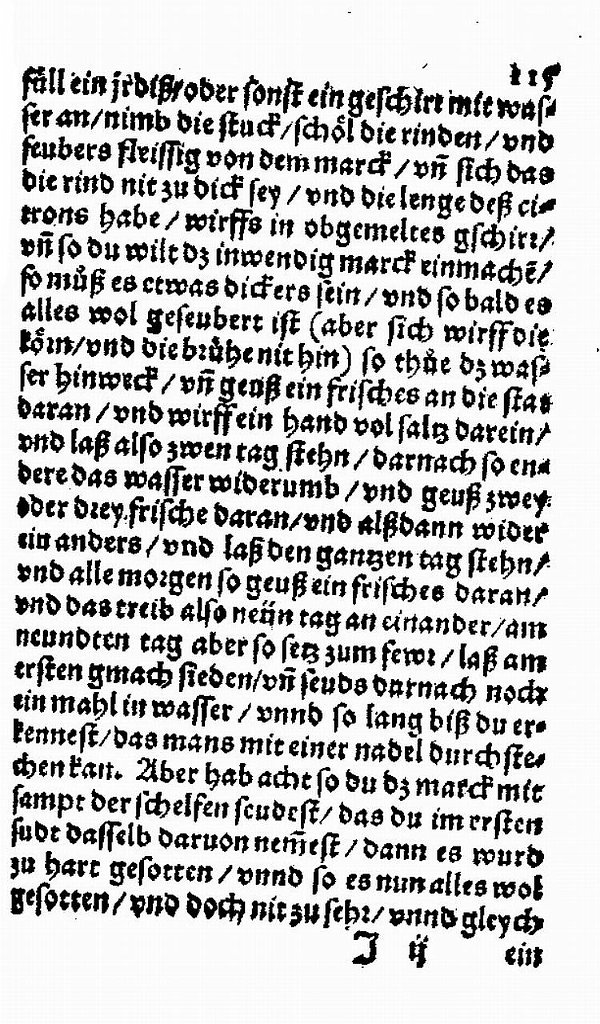 115
fäll ein jrdiß/oder sonst ein geschirr mit was-
ser an/nimb die stuck/schöl die rinden/vnd
seubers fleissig von dem marck/vñ sich das
die rind nit zu dick sey/vnd die lenge deß ci-
trons habe/wirffs in obgemeltes gschirr/
vñ so du wilt dz inwendig marck einmachẽ/
so muͦß es etwas dickers sein/vnd so bald es
alles wol geseubert ist (aber sich wirff die
körn/vnd die brühe nit hin) so thuͤe dz was-
ser hinweck/vñ geuß ein frisches an die stat
daran/vnd wirff ein hand vol saltz darein/
vnd laß also zwen tag stehn/darnach so en-
dere das wasser widerumb/vnd geuß zwey
oder drey frische daran/vnd alßdann wider
ein anders/vnd laß den gantzen tag stehn/
vnd alle morgen so geuß ein frisches daran/
vnd das treib also neün tag an einander/am
neundten tag aber so setz zum fewr/laß am
ersten gmach sieden/vñ seuds darnach noch
ein mahl in wasser/vnnd so lang biß du er-
kennest/das mans mit einer nadel durchste-
chen kan. Aber hab acht so du dz marck mit
sampt der schelfen seudest/das du im ersten
sudt dasselb daruon nem̃est/dann es wurd
zu hart gesotten/vnnd so es nun alles wol
gesotten/vnd doch nit zu sehr/vnnd gleych
J ij ein